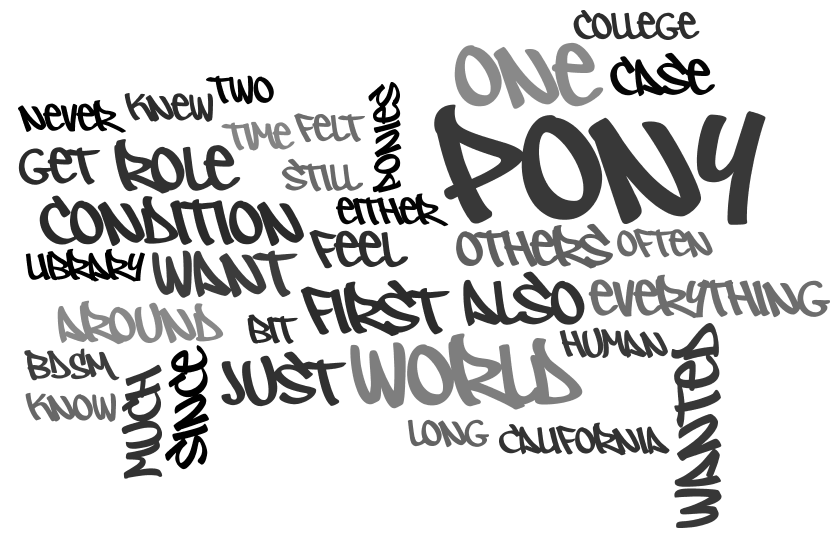 COLLEGE
ONE
CASE
NEVER
KNEW
TWO
PONIES
PONY
TIME
FELT
GET
ROLE
STILL
CONDITION
EITHER
LIBRARY
WANT
FEEL
OTHERS
OFTEN
AROUND
BIT
FIRST
ALSO
EVERYTHING
BDSM
MUCH
SINCE
JUST
WORLD
HUMAN
WANTED
KNOW
LONG
CALIFORNIA